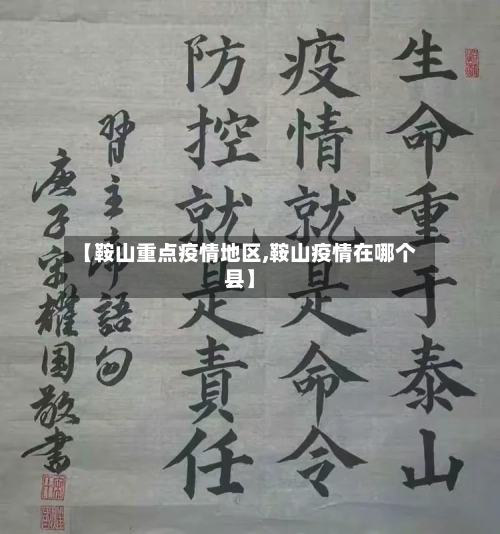 生命重于泰山
疫情就是命令
防控就是責任
習主席語句
庚子宋耀国敬書
【鞍山重点疫情地区,鞍山疫情在哪个
县】